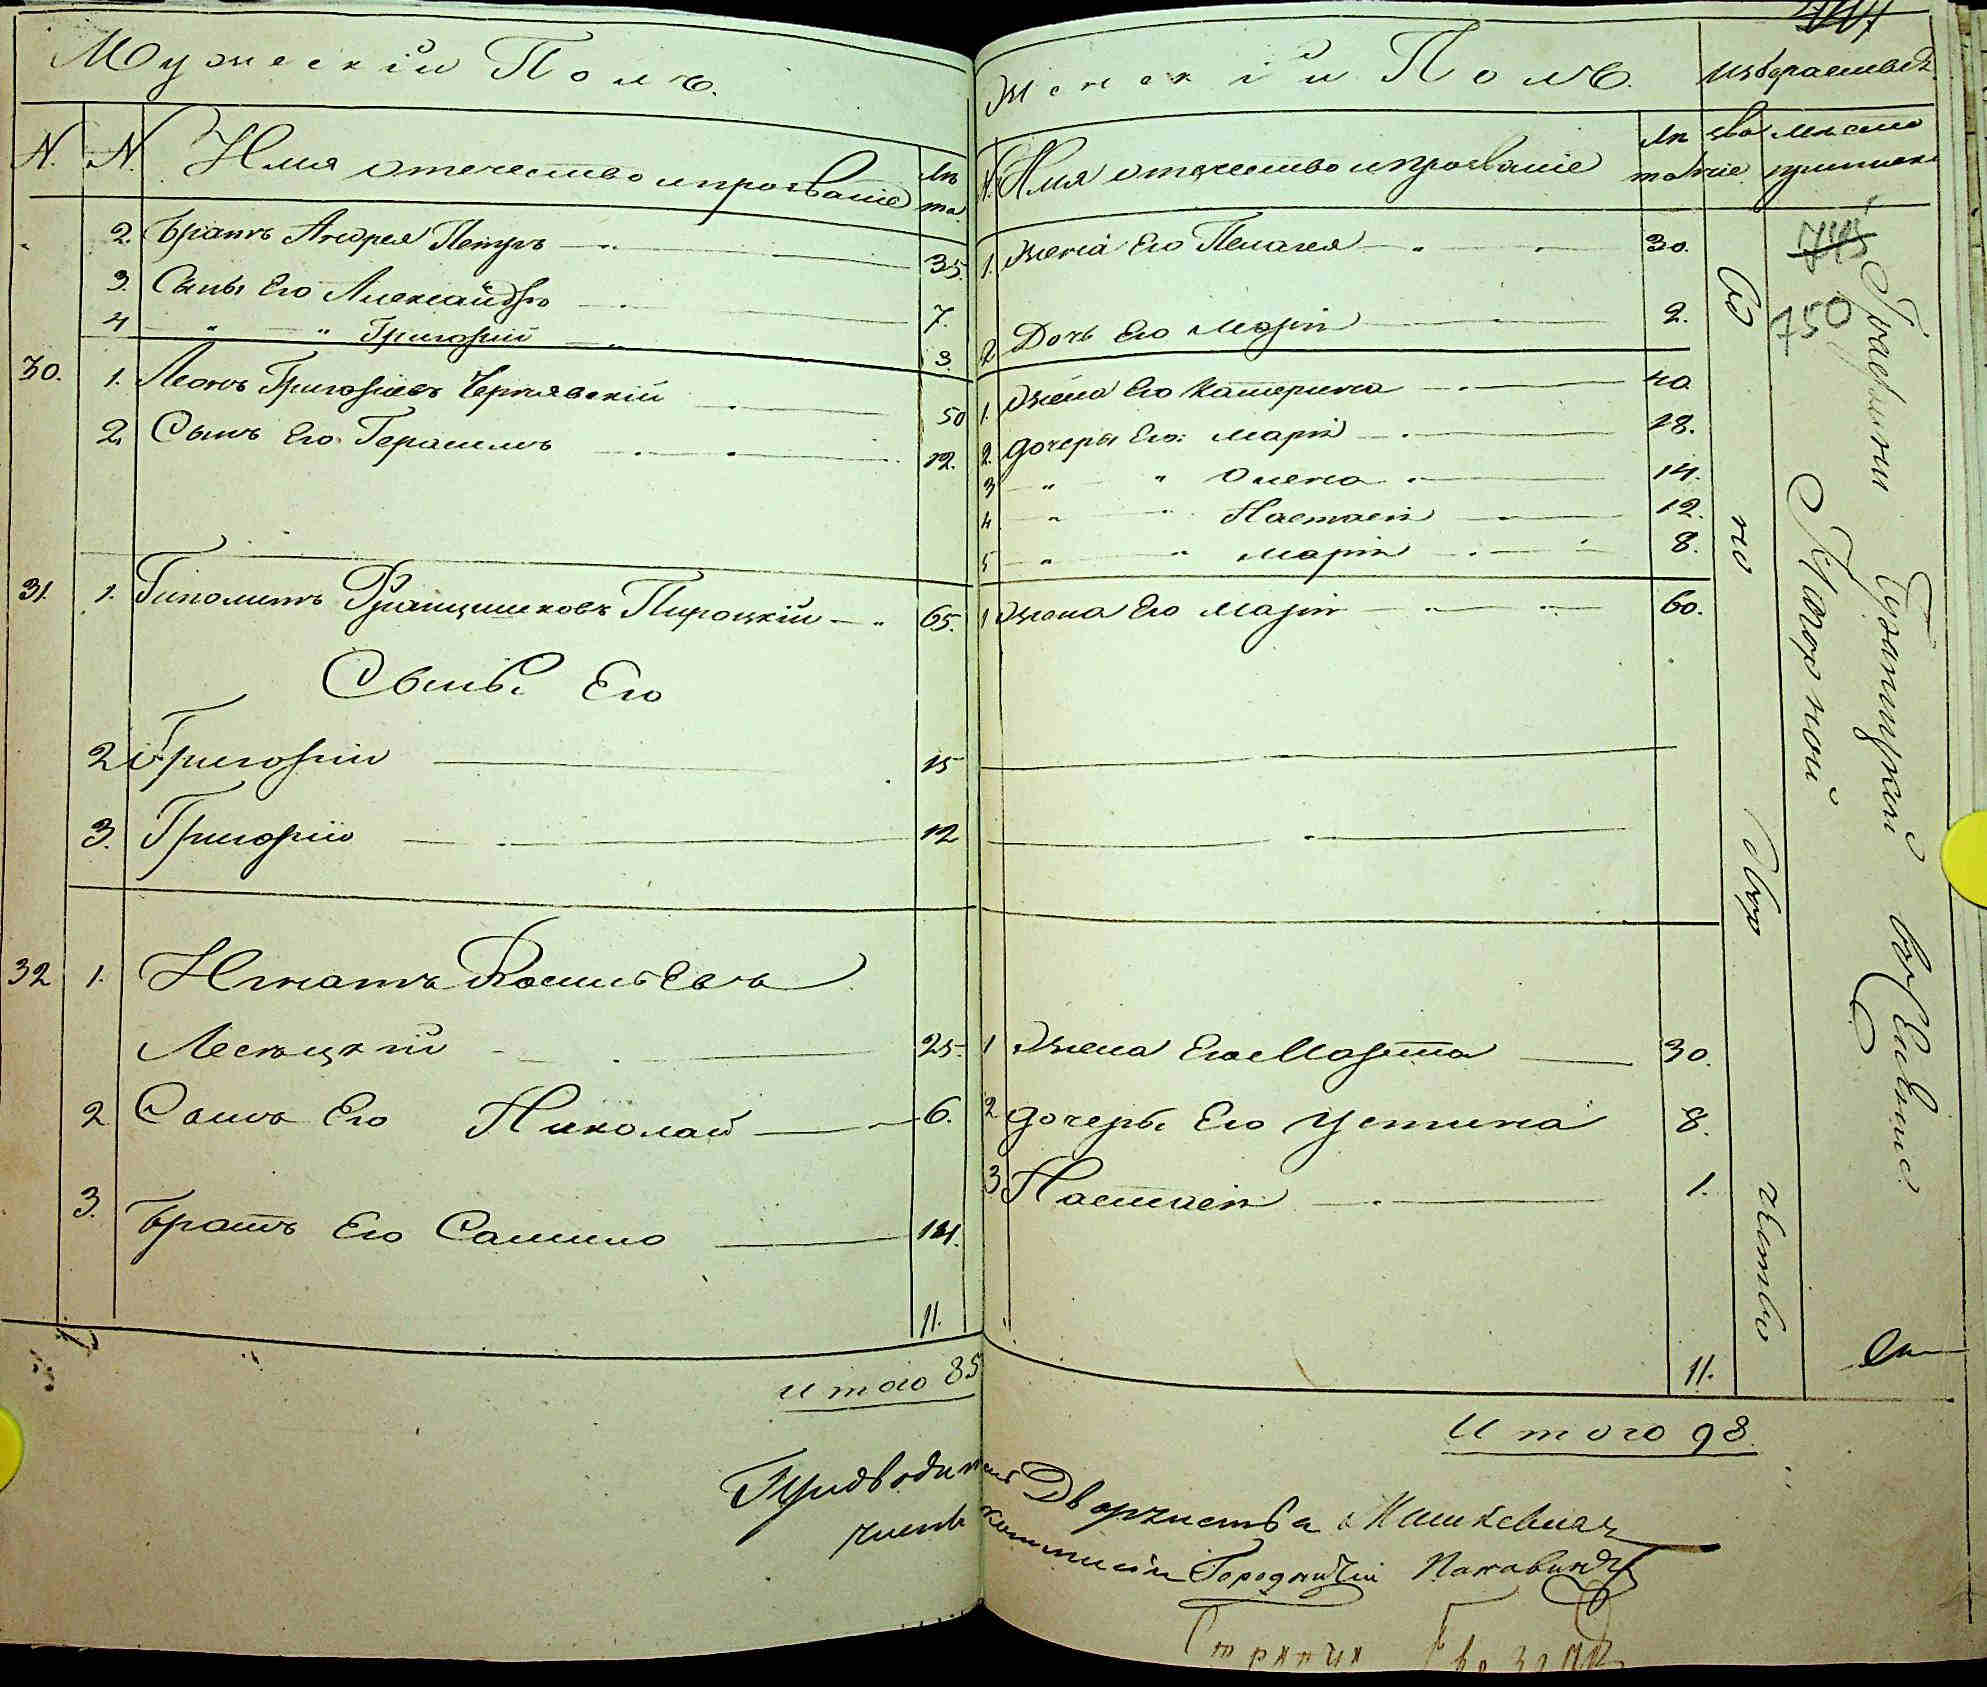 Мужескій Полъ.
N. N. Имя отечество и прозваніе Лѣта.
2. Братъ Андрея Петръ 35.
3. Сыны Его Александръ 7.
4 " " Григорій 3
30. 1. Леонъ Григоріевъ Чернявскій 50
2. Сынъ Его Герасимъ 12.
31. 1. Гиполитъ Францишковъ Пироцкій 65.
Сыны Его
2 Григорій 15
3. Григорій 12
32 1. Игнатъ Васильевъ
Лесецкій 25.
2 Сынъ Его Николай 6.
3. Братъ Его Самило 14.
11.
Итого 85
Женскій Полъ.
N. Имя отечество и прозваніе Лѣта званіе мѣсто
1. Жена Его Пелагея 30.
2 Дочь Его Марія 2.
1. Жена Его Катерина 40.
2. дочеры Его: Марія 18.
3 " " Олена 14.
4. " " Настасія 12.
5 " " Марія 8.
1 Жена Его Марія 60.
1 Жена Его Марта 30.
2 дочеры Его Устина 8.
3 Настасія 1.
11.
Итого 98.
745
750
Предводитель Дворянства
членъ коммисіи Городничій
Стряпчій